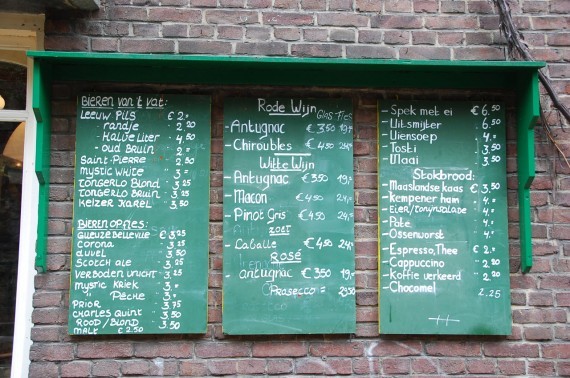 Bieren van 't vat:
Leeuw Pils € 2,-
- randje " 2,20
- Halve Liter " 4,50
- oud Bruin " 2,-
Saint-Pierre " 2,50
mystic white " 3,-
Tongerlo Blond " 3,25
Tongerlo Bruin " 3,25
Keizer Karel " 3,50
Bieren op fles:
Gueuze Bellevue € 3,25
Corona " 3,25
duvel " 3,50
Scotch ale " 3,25
Verboden Vrucht " 3,25
mystic Kriek " 3,-
" Pêche " 3,-
Prior " 3,75
Charles Quint " 3,50
Rood/Blond " 3,50
malt € 2,50
Rode Wijn
Glas Fles
- Antugnac € 3,50 19,-
- Chiroubles € 4,50 24,-
Witte Wijn
- Antugnac € 3,50 19,-
- Macon € 4,50 24,-
- Pinot Gris € 4,50 24,-
zoet
- Caballe € 4,50 24,-
Rosé
- antugnac € 3,50 19,-
Prosecco =
- Spek met ei € 6,50
- Uitsmijter " 6,50
- Uiensoep " 4,-
- Tosti " 3,50
- Vlaai " 3,50
Stokbrood:
- Maaslandse kaas € 3,50
- Kempener ham " 4,-
- Eier/tonijnsalade " 4,-
- Pate " 4,-
- Ossenworst " 4,-
- Espresso, Thee € 2,-
- Cappuccino " 2,20
- Koffie verkeerd " 2,20
- Chocomel 2,25